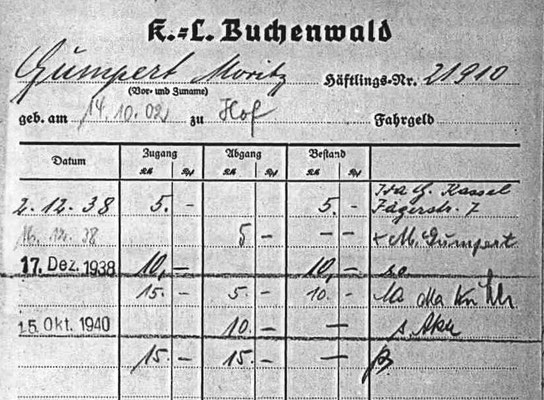 K.=L. Buchenwald
Gumpert Moritz Häftlings=Nr. 21910
(Vor= und Zuname)
geb. am 14.10.02 zu Hof Fahrgeld
Datum Zugang Abgang Bestand
RM Rpf RM Rpf RM Rpf
Kassel
2.12.38 5. - 5. - Jägerstr. 7
16.12.38 5 - - - M. Gumpert
17. Dez. 1938 10,- 10,-
15. - 5. - 10. -
15. Okt. 1940 10. - - s. Akte
15. - 15. - -